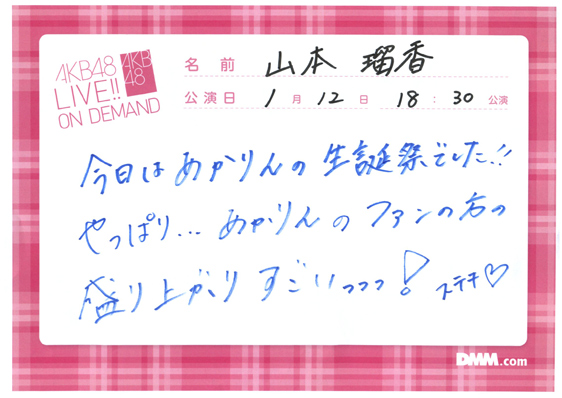 AKB48
LIVE!!
ON DEMAND
AKB
48
名前 山本 瑠香
公演日 1月12日 18:30公演
今日はめかりんの生誕祭でした!!
やっぱり... めかりんのファンの方の
盛り上がりすごいっっっ! ステキ♡
DMM.com